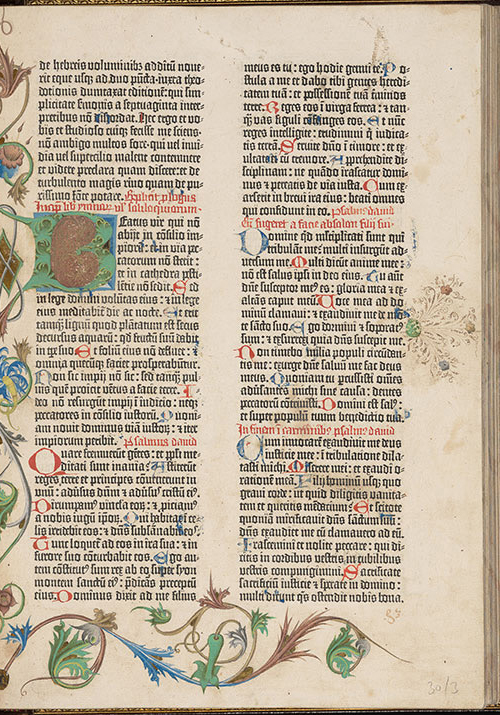 de hebreis voluminibus additũ nove-
rit eque usq; ad duo pũcta · iuxta theo-
dotionis dumtaxat editionẽ: qui sim-
plicitate sermonis a septuaginta inter-
pretibus nõ discordat. Hec ergo et vo-
bis et studioso cuiq; fecisse me sciens:
nõ ambigo multos fore · qui vel invi-
dia vel supercilio malent contemnere
et videre preclara quam discere: et de
turbulento magis rivo quam de pu-
rissimo fonte potare. Explicit plogus
Beatus vir qui nõ
abijt in cõsilio im-
piorũ: et in via pec-
catorum nõ stetit:
et in cathedra pesti-
lentie nõ sedit. Sed
in lege domini voluntas eius: et in lege
eius meditabit̃ die ac nocte. Et erit
tamq̃ lignũ quod plãtatum est secus
decursus aquarũ: qd̃ fructũ suũ dabit
in tpe suo. Et foliũ eius nõ defluet: et
omnia quecũq; faciet prosperabũtur.
Non sic impij nõ sic: sed tamq̃ pul-
vis quẽ proicit vẽtus a facie terre. I-
deo nõ resurgũt impij in iudicio: neq;
peccatores in cõsilio iustorũ. Quoni-
am novit dominus viã iustorũ: et iter
impiorum peribit. Psalmus david
Quare fremuerũt gẽtes: et ppli me-
ditati sunt inania? Astiterũt
reges terre et principes cõvenerũt in
unũ: adũsus dñm et adũsus cristũ ei9.
Dirumpam9 vincla eorũ: et piciam9
a nobis iugũ ipsorũ. Qui habitat in ce-
lis irridebit eos: et dñs subsãnabit eos.
Tunc loquet̃ ad eos in ira sua: et in
furore suo cõturbabit eos. Ego au-
tem cõstitut9 sum rex ab eo super syon
montem sanctũ ei9: p̃dicãs preceptũ
eius. Dominus dixit ad me filius
meus es tu: ego hodie genui te. Po-
stula a me et dabo tibi gentes heredi-
tatem tuã: et possessionẽ tuã terminos
terre. Reges eos ĩ virga ferrea: et tan-
q̃ vas figuli cõfringes eos. Et nũc
reges intelligite: erudimini q̃ iudica-
tis terrã. Servite dño ĩ timore: et ex-
ultate ei cũ tremore. Apprehendite di-
sciplinam: ne quãdo irascatur domi-
nus et pereatis de via iusta. Cum ex-
arserit in brevi ira eius: beati omnes
qui confidunt in eo. Psalmus david
Cũ fugeret a facie absalon filij sui.
Domine qd̃ multiplicati sunt qui
tribulãt me: multi insurgũt ad-
versum me. Multi dicũt anime mee:
nõ est salus ipsi in deo eius. Tu autẽ
dñe susceptor me9 es: gloria mea et ex-
altãs caput meũ. Voce mea ad do-
minũ clamavi: et exaudivit me de mõ-
te sãcto suo. Ego dormivi et soporat9
sum: et exsurrexi quia dñs suscepit me.
Non timebo milia populi circũdan-
tis me: exurge dñe salvũ me fac deus
meus. Quoniam tu percussisti omẽs
adũsantes michi sine causa: dentes
peccatorũ cõtrivisti. Domini est sal9:
et super populũ tuum benedictio tua.
In finem ĩ carmĩnibus psalmus david
Cum invocarem exaudivit me deus
iusticie mee: ĩ tribulatione dila-
tasti michi. Miserere mei: et exaudi o-
rationẽ meã. Filij hominũ usq; quo
gravi corde: ut quid diligitis vanita-
tem et queritis mendacium? Et scitote
quoniã mirificavit dñs sanctum suũ:
dñs exaudiet me cũ clamavero ad eũ.
Irascemini et nolite peccare: qui di-
citis in cordibus vestris in cubilibus
vestris compungimini. Sacrificate
sacrificiũ iusticie et sperate in domino:
multi dicunt q̃s ostendit nobis bona.
30/3